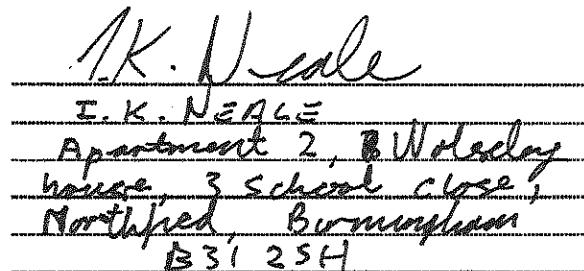 I.K. Neale
I.K. NEALE
Apartment 2, Wolesley
house, 3 School close,
Northfied, Birmingham
B31 2SH